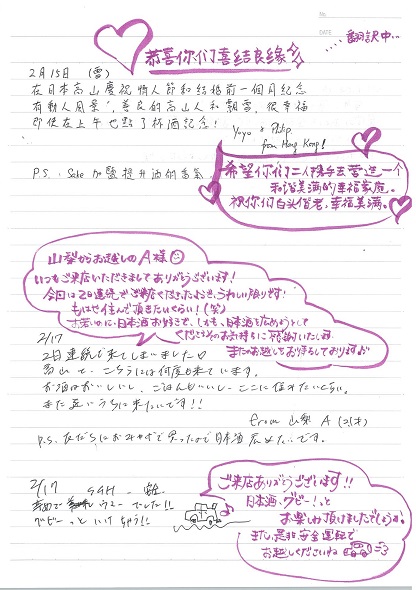 No.
DATE
翻訳中…
恭喜你们喜结良缘
2月15日 (雪)
在日本高山慶祝情人節和結婚前一個月紀念
有動人風景、善良的高山人和飄雪，很幸福
即使在上午也點了杯酒紀念！
Yoyo & Philip
from Hong Kong!
P.S. Sake 加鹽提升酒的香氣
希望你们二人携手去营造一个
和谐美满的幸福家庭。
祝你们白头偕老，幸福美满。
山梨からお越しのA様
いつもご来店いただきましてありがとうございます！
今回は2日連続でご来店くださったようで、うれしい限りです！
もはや住んで頂きたいぐらい！(笑)
お若いのに、日本酒お好きで、しかも、日本酒を広めようとして
くださるそのお気持ちに感謝いたします。
またのお越しをお待ちしております♪
2/17
2日連続で来てしまいました
高山で、こちらには何度も来ています。
お酒はおいしいし、ごはんもいいし、ここに住みたいくらい。
また近いうちに来たいです!!
from 山梨 A (21才)
P.S. 友だちにおみやげで買ったので日本酒広めたいです。
2/17
ウマーでした!!
グビーっといけちゃう!!
ご来店ありがとうございます!!
日本酒、グビーっと
お楽しみ頂けましたでしょうか。
また、是非安全運転で
お越しくださいね